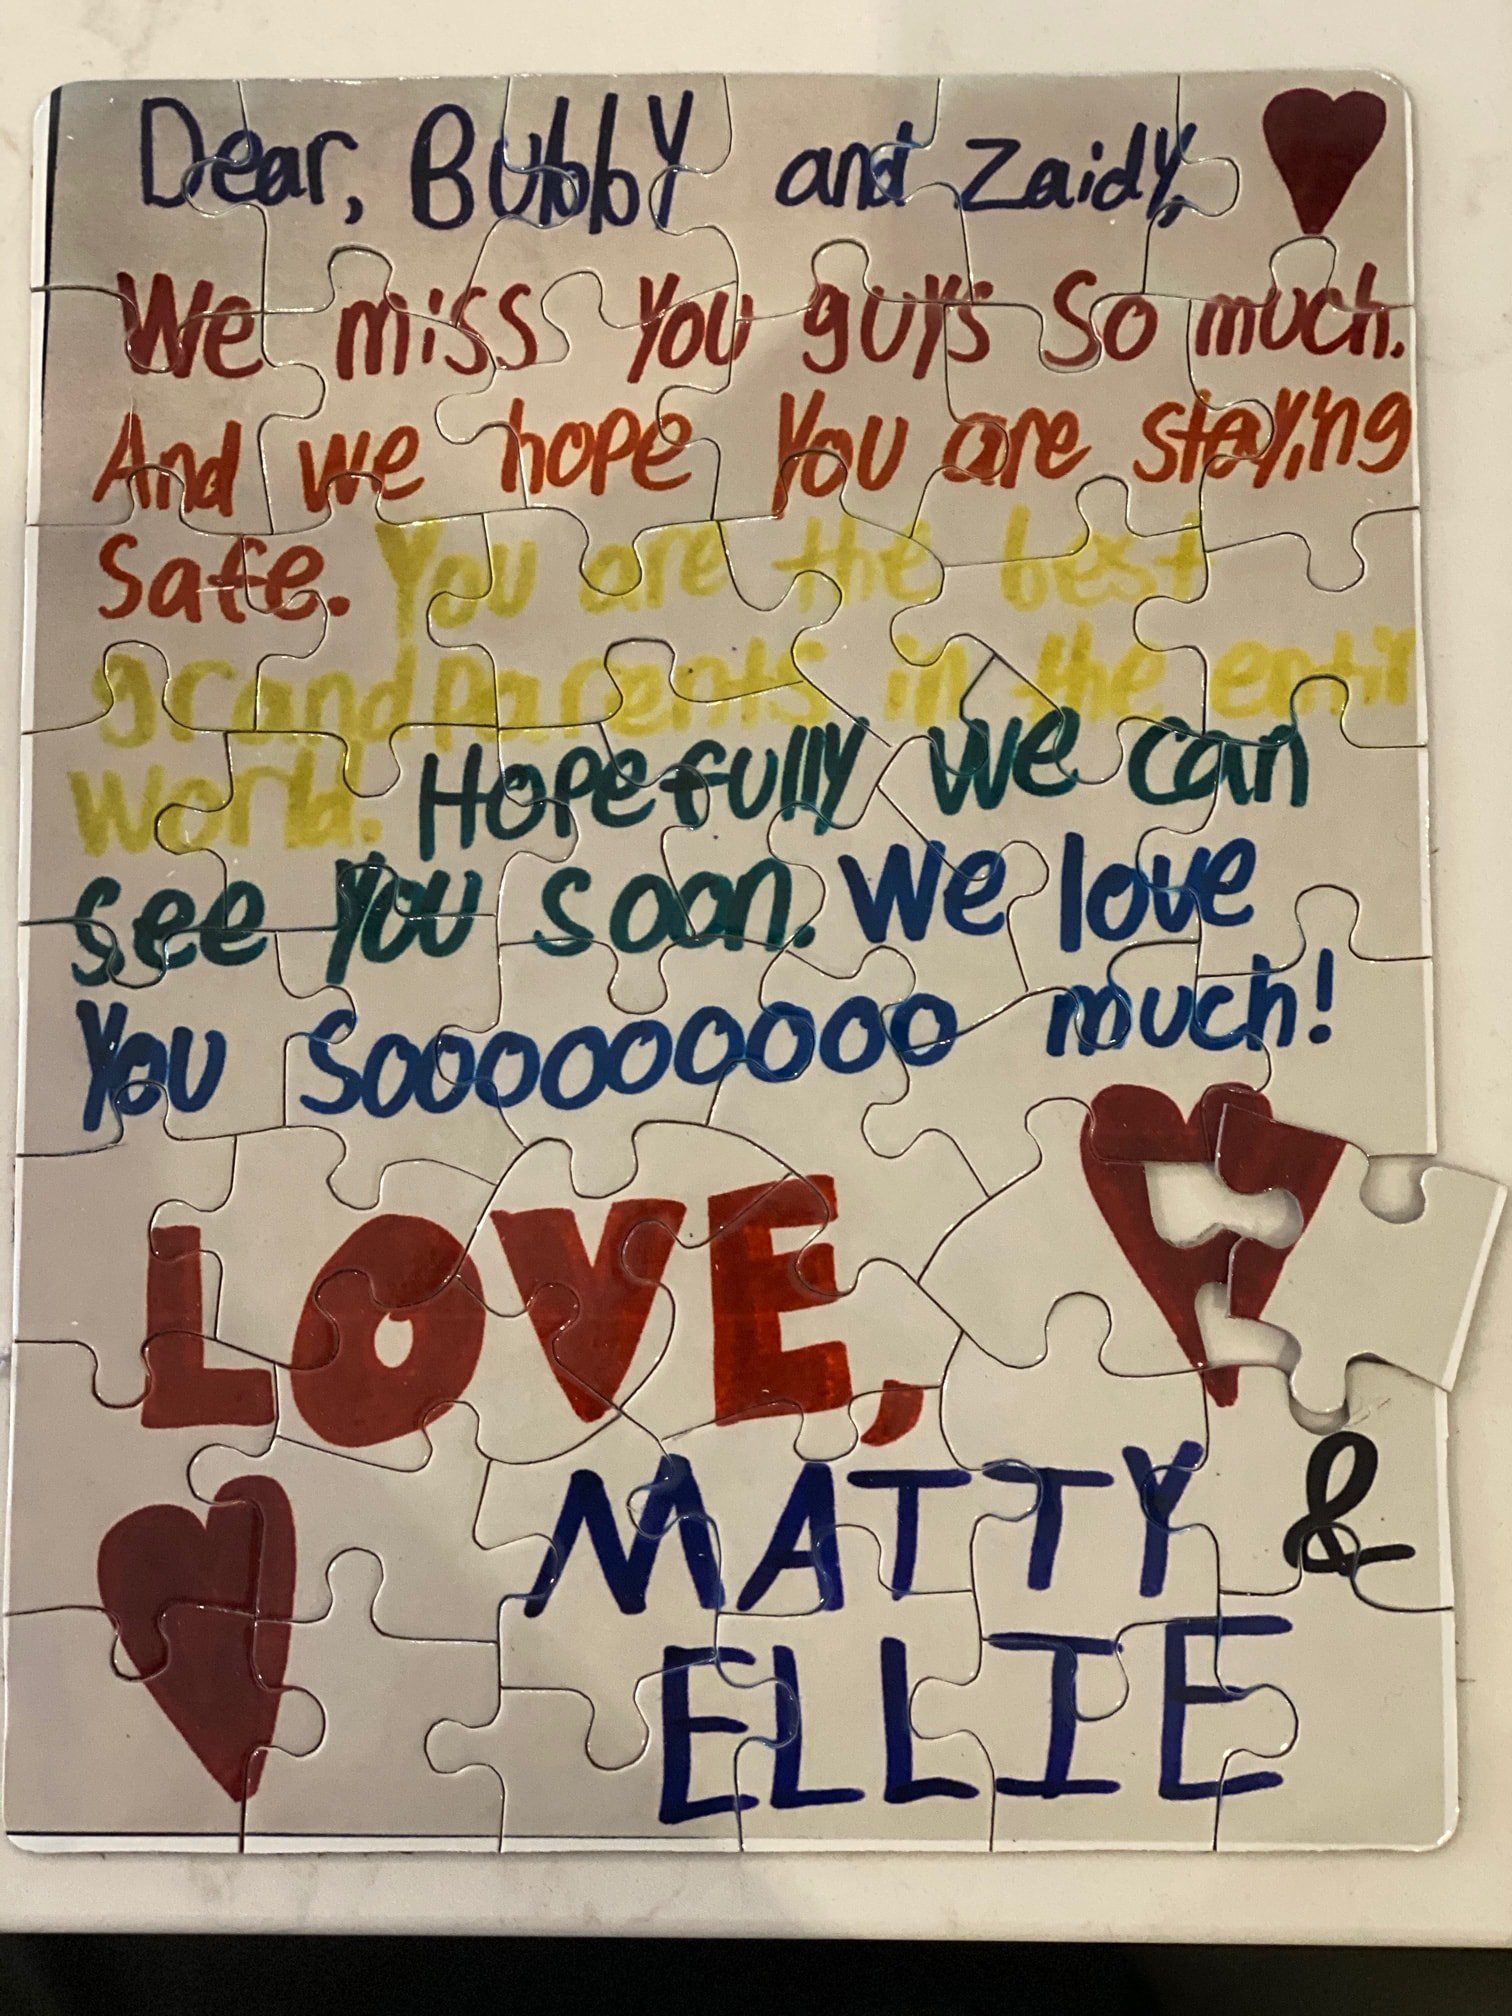 Dear, Bubby and Zaidy,
We miss you guys so much.
And we hope you are staying
safe. You are the best
grandparents in the entir
world. Hopefully we can
see you soon. We love
you sooooooooo much!
LOVE,
MATTY &
ELLIE